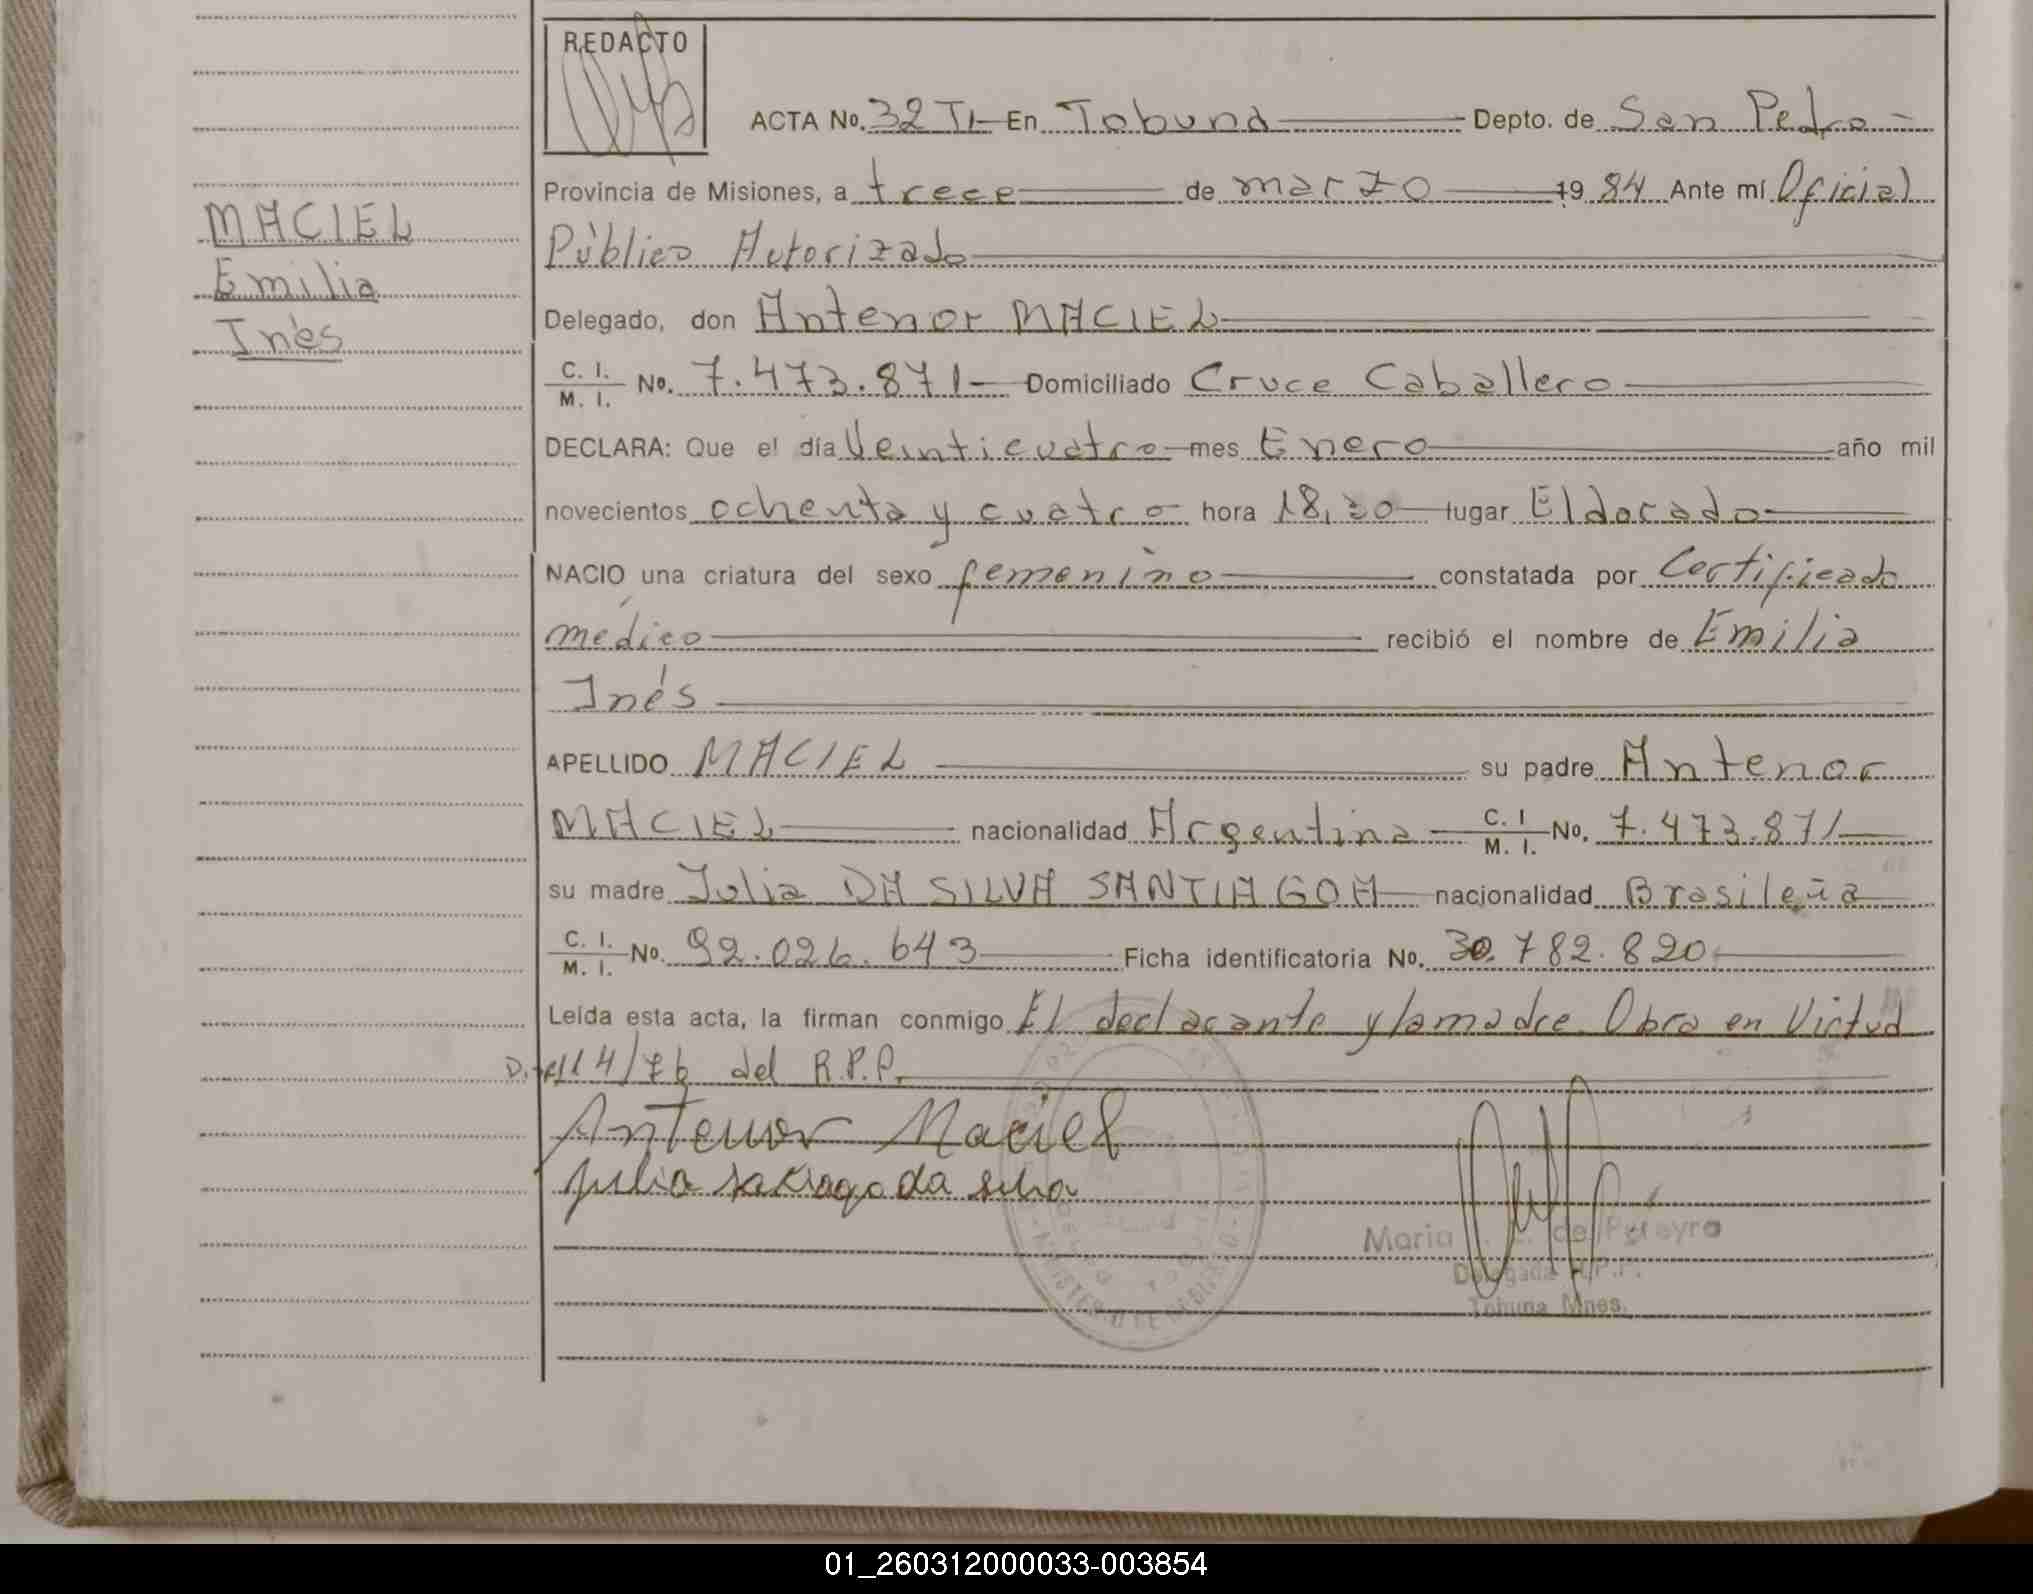 REDACTO
ACTA No. 32 TI En Tobuna Depto. de San Pedro
Provincia de Misiones, a trece de marzo 1984 Ante mí Oficial
Público Autorizado
MACIEL
Emilia
Inés
Delegado, don Antenor MACIEL
C. I. M. I. No. 7.473.871 Domiciliado Cruce Caballero
DECLARA: Que el día Veinticuatro mes Enero año mil
novecientos ochenta y cuatro hora 18,20 lugar Eldorado
NACIO una criatura del sexo femenino constatada por Certificado
médico recibió el nombre de Emilia
Inés
APELLIDO MACIEL su padre Antenor
MACIEL nacionalidad Argentina C. I M. I. No. 7.473.871
su madre Julia DA SILVA SANTIAGOA nacionalidad Brasileña
C. I. M. I. No. 92.026.643 Ficha identificatoria No. 30.782.820
Leída esta acta, la firman conmigo El declarante y la madre. Obra en Virtud
114/76 del R.P.P.
Antenor Maciel
Julia Satiago da silva
Maria de Pereyra
Delegada R.P.P.
Tobuna Mnes.
01_260312000033-003854